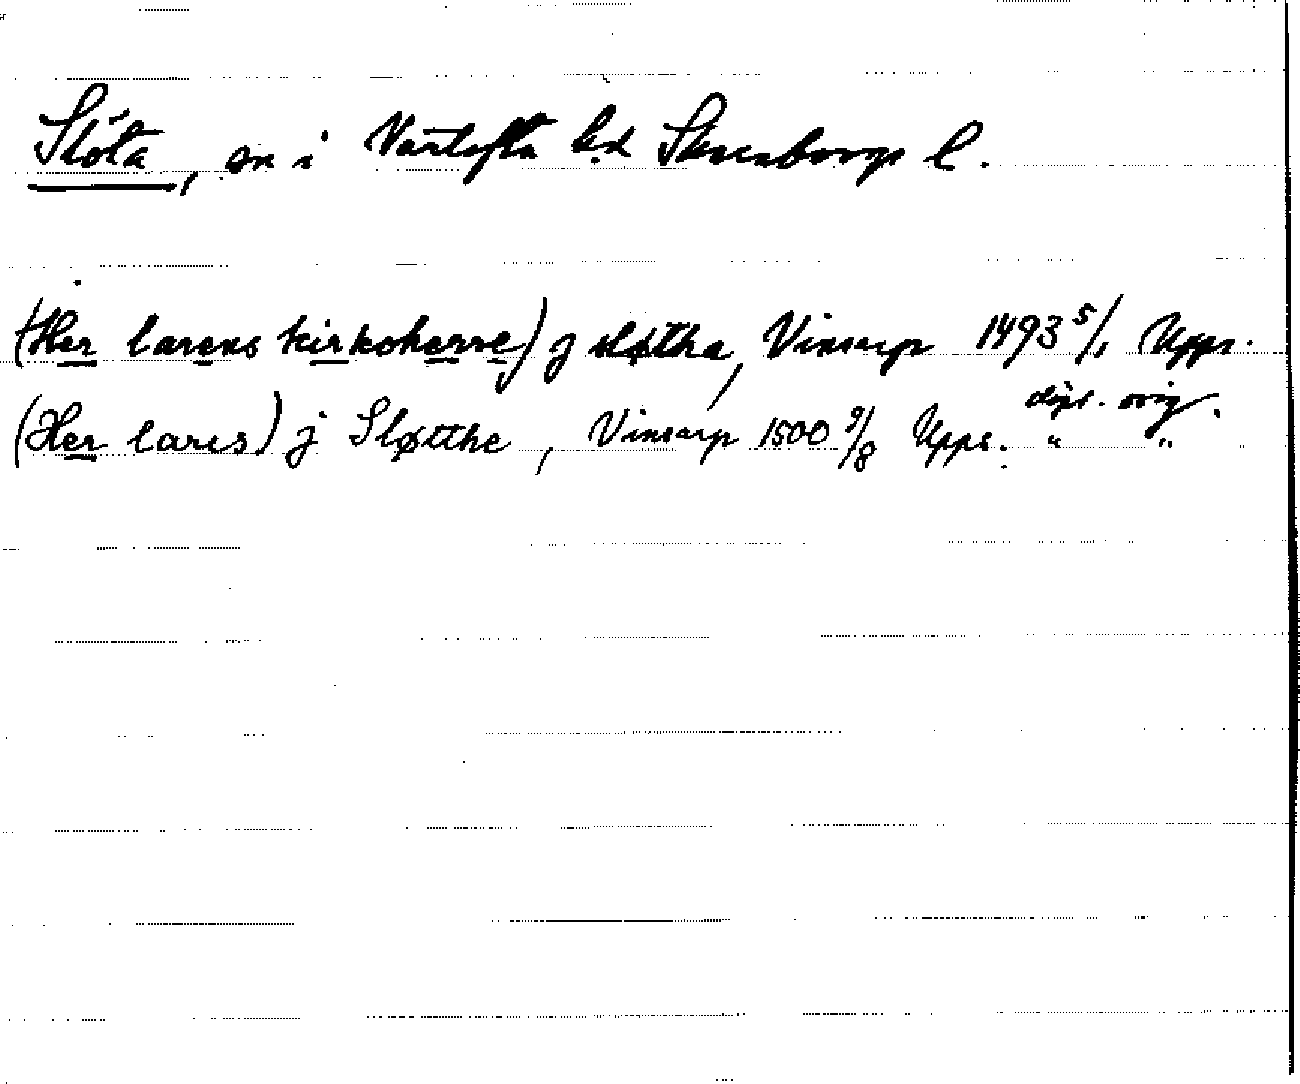 Slöta, sn i Vartofta hd Skaraborgs l.
(Her larens kirkoherre) j sløtha, Vinsarp 1493 5/1 Upps.
dipl. orig.
(Her lares) j Sløtthe, Vinsarp 1500 9/8 Upps. " "